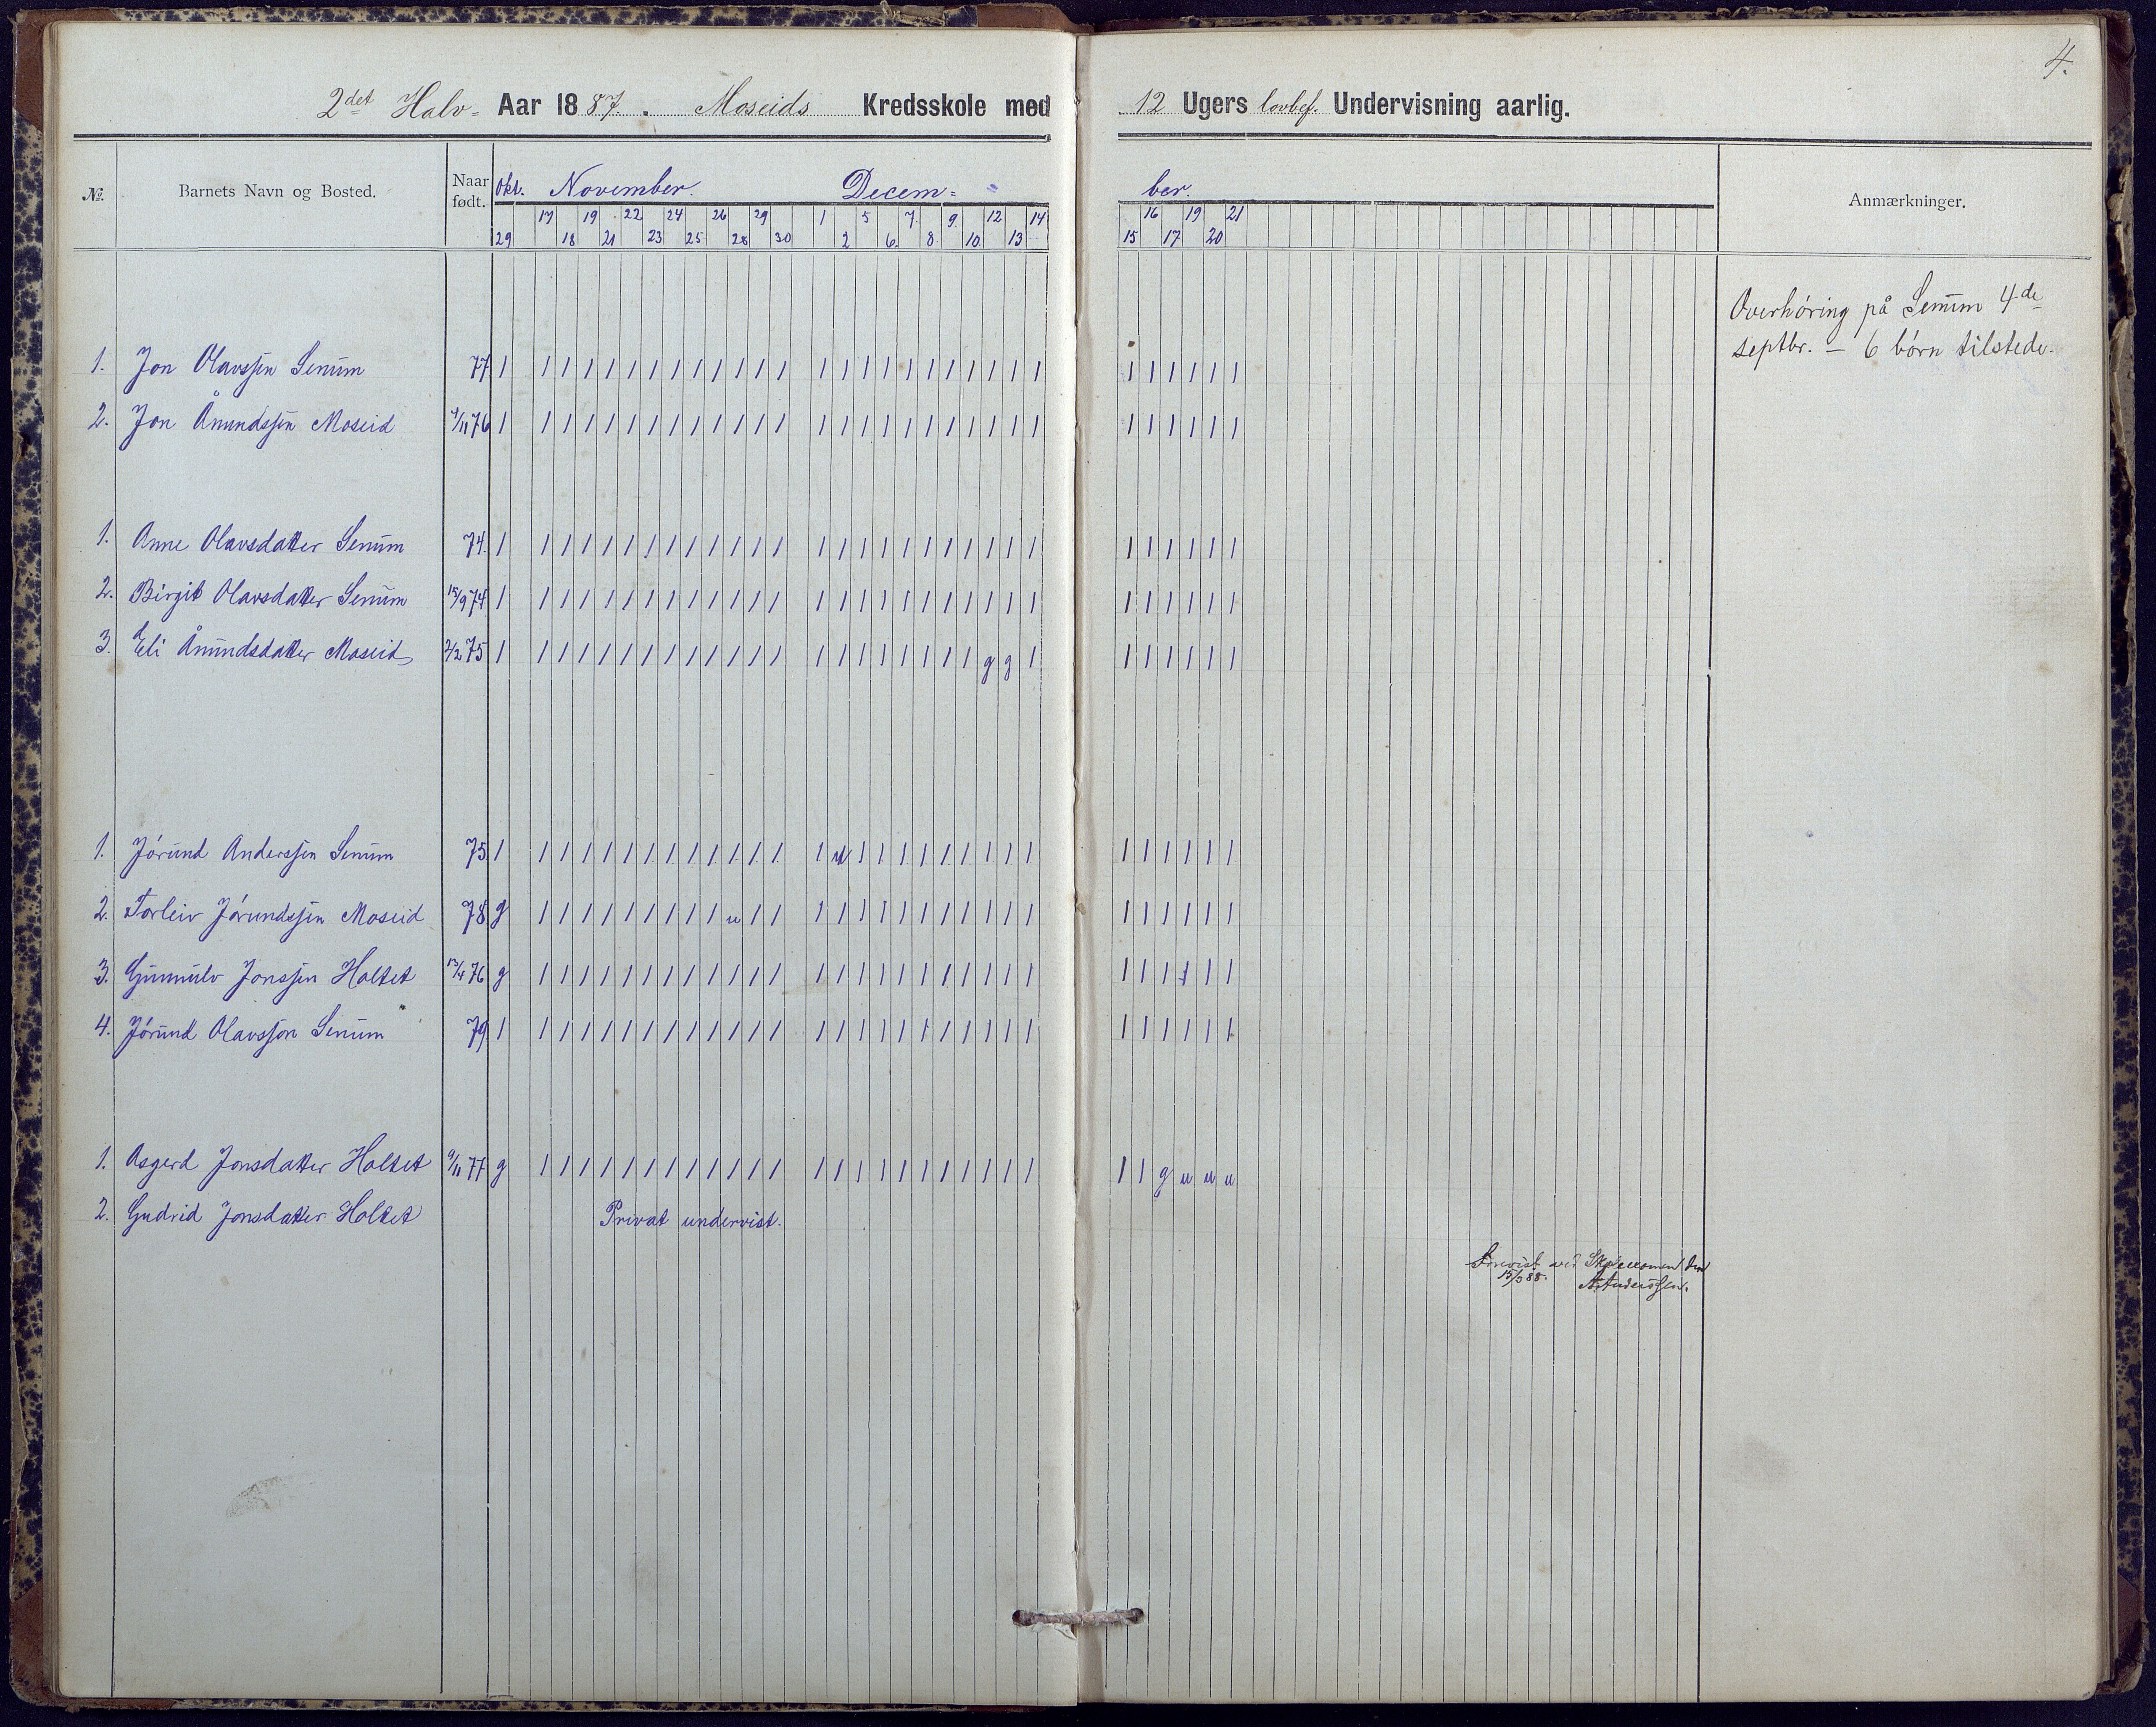 4.
2det Halv- Aar 1887. Moseids Kredsskole med 12 Ugers lovbef. Undervisning aarlig.
No. Barnets Navn og Bosted. Naar født. Okt. November. Decem= ber. Anmærkninger.
17 19 22 24 26 29 1 5 7. 9. 12 14 16 19 21
29 18 21 23 25 28 30 2 6. 8. 10 13 15 17 20
Overhöring på Senum 4de
septbr. — 6 börn tilstede.
1. Jon Olavssen Senum 77 1 1 1 1 1 1 1 1 1 1 1 1 1 1 1 1 1 1 1 1 1 1 1 1 1 1 1 1 1 1
2. Jon Ånundssen Moseid 4/11 76 1 1 1 1 1 1 1 1 1 1 1 1 1 1 1 1 1 1 1 1 1 1 1 1 1 1 1 1 1 1
1. Anne Olavsdatter Senum 74. 1 1 1 1 1 1 1 1 1 1 1 1 1 1 1 1 1 1 1 1 1 1 1 1 1 1 1 1 1 1
2. Birgit Olavsdatter Senum 15/9 74 1 1 1 1 1 1 1 1 1 1 1 1 1 1 1 1 1 1 1 1 1 1 1 1 1 1 1 1 1 1
3. Eli Ånundsdatter Moseid 2/2 75 1 1 1 1 1 1 1 1 1 1 1 1 1 1 1 1 1 1 1 1 1 g g 1 1 1 1 1 1 1
1. Jörund Anderssen Senum 75 1 1 1 1 1 1 1 1 1 1 1 1 1 1 u 1 1 1 1 1 1 1 1 1 1 1 1 1 1 1
2. Torleiv Jörundssen Moseid 78 g 1 1 1 1 1 1 1 1 1 u 1 1 1 1 1 1 1 1 1 1 1 1 1 1 1 1 1 1 1
3. Gunnulv Jonssen Holtet 13/4 76 g 1 1 1 1 1 1 1 1 1 1 1 1 1 1 1 1 1 1 1 1 1 1 1 1 1 1 1 1 1
4. Jörund Olavsson Senum 79 1 1 1 1 1 1 1 1 1 1 1 1 1 1 1 1 1 1 1 1 1 1 1 1 1 1 1 1 1 1
1. Asgerd Jonsdatter Holtet 9/11 77 g 1 1 1 1 1 1 1 1 1 1 1 1 1 1 1 1 1 1 1 1 1 1 1 1 1 g u u u
2. Gudrid Jonsdatter Holtet Privat undervist.
ved Skoleexamen den
15/3 88. A. Anderssen.